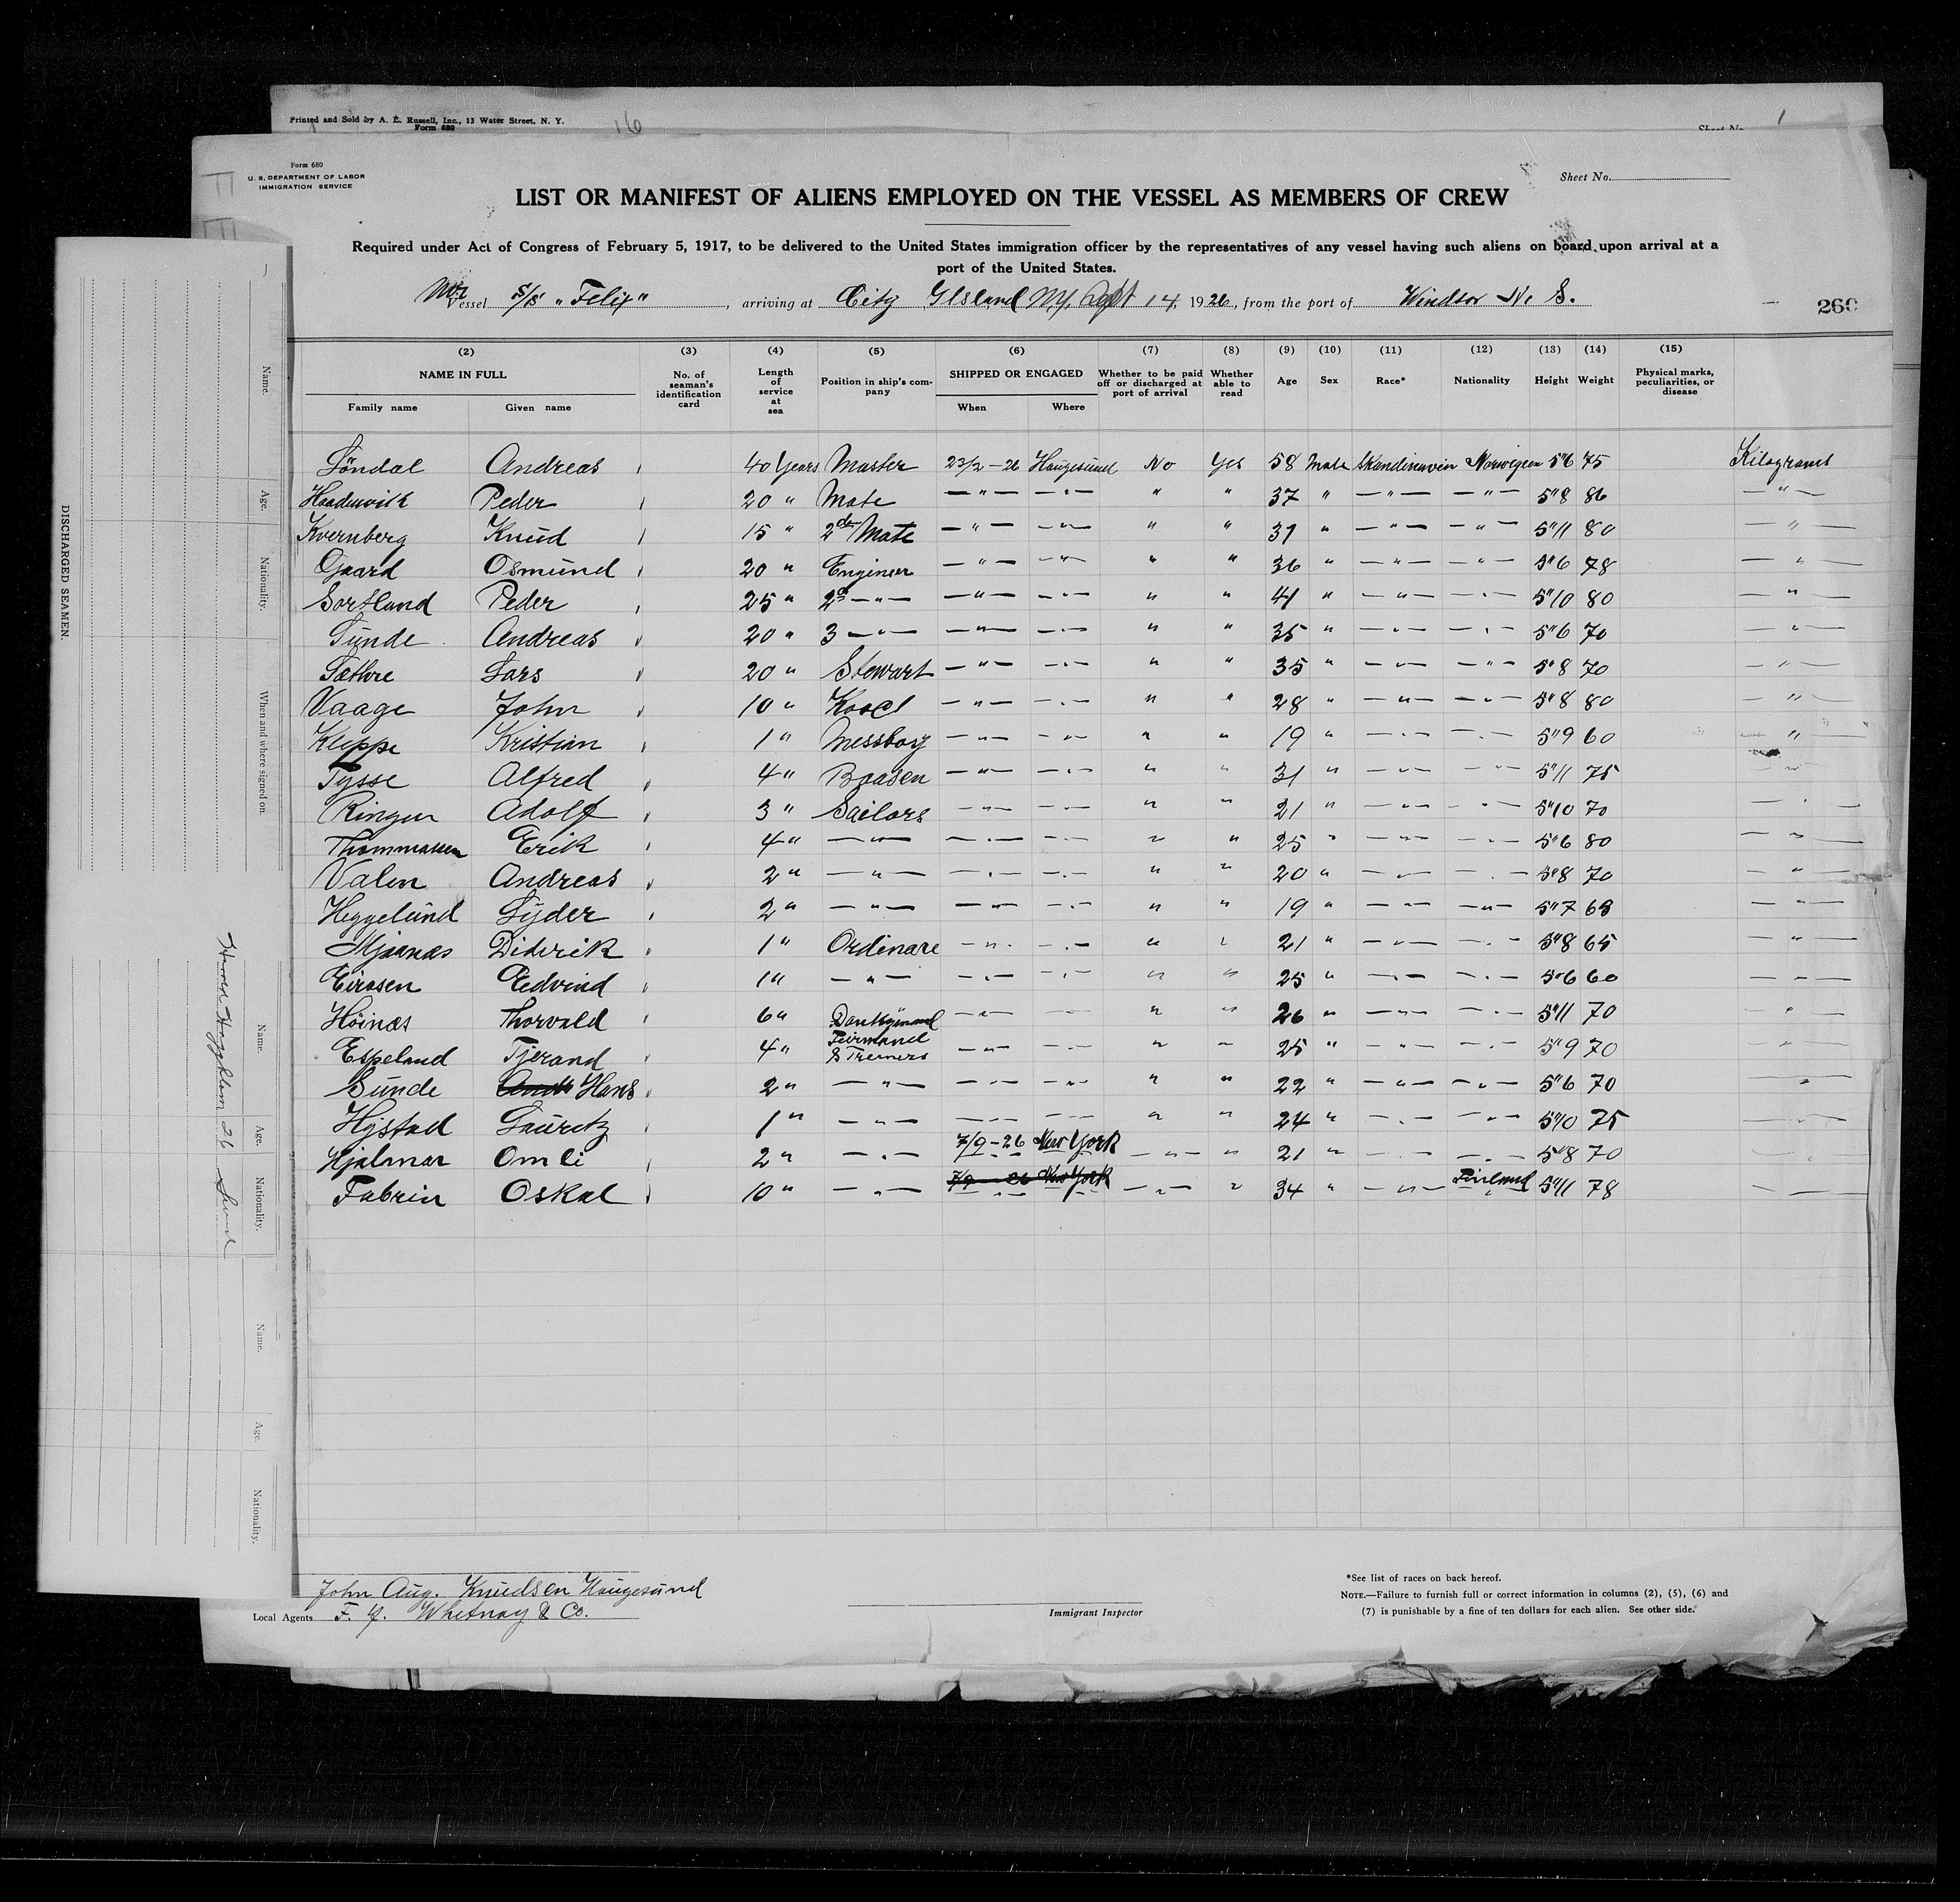 Printed and Sold by A. E. Russell, Inc., 13 Water Street, N. Y.
Form 689
16
Sheet No.
1
Form 680
U. S. DEPARTMENT OF LABOR
IMMIGRATION SERVICE
Sheet No.
LIST OR MANIFEST OF ALIENS EMPLOYED ON THE VESSEL AS MEMBERS OF CREW
Required under Act of Congress of February 5, 1917, to be delivered to the United States immigration officer by the representatives of any vessel having such aliens on board upon arrival at a
port of the United States.
Nor Vessel S/S "Felix", arriving at City Island N.Y. 14, 1926, from the port of Windsor N. S.
260
(2) (3) (4) (5) (6) (7) (8) (9) (10) (11) (12) (13) (14) (15)
NAME IN FULL No. of seaman's identification card Length of service at sea Position in ship's company SHIPPED OR ENGAGED Whether to be paid off or discharged at port of arrival Whether able to read Age Sex Race* Nationality Height Weight Physical marks, peculiarities, or disease
Family name Given name When Where
Andreas 40 Years Master 23/2-26 Haugesund No Yes 58 Male Skandinavin Norwegien 5"6 75 Kilograms
Peder 20 " Mate —"— —"— " " 37 " —"— —"— 5"8 86 —"—
Kvernberg Knud 15 " 2de Mate —"— —"— " " 31 " —"— —"— 5"11 80 —"—
Gaard Osmund 20 " Engineer —"— —"— " " 36 " —"— —"— 5"6 78 —"—
Sortland Peder 25 " 2d —"— —"— —"— " " 41 " —"— —"— 5"10 80 —"—
Sunde Andreas 20 " 3 —"— —"— —"— " " 35 " —"— —"— 5"6 70 —"—
Sæthre Lars 20 " Stewart —"— —"— " " 35 " —"— —"— 5"8 70 —"—
Vaage John 10 " Koock —"— —"— " " 28 " —"— —"— 5"8 80 —"—
Kleppe Kristian 1 " Messboy —"— —"— " " 19 " —"— —"— 5"9 60 —"—
Tysse Alfred 4 " Baasen —"— —"— " " 31 " —"— —"— 5"11 75 —"—
Ringen Adolf 3 " Sailors —"— —"— " " 21 " —"— —"— 5"10 70 —"—
Thommassen Erik 4 " —"— —"— —"— " " 25 " —"— —"— 5"6 80 —"—
Valen Andreas 2 " —"— —"— —"— " " 20 " —"— —"— 5"8 70 —"—
Heggelund Lyder 2 " —"— —"— —"— " " 19 " —"— —"— 5"7 68 —"—
Mjaanas Diderik 1 " Ordinare —"— —"— " " 21 " —"— —"— 5"8 65 —"—
Eidvind 1 " —"— —"— —"— " " 25 " —"— —"— 5"6 60 —"—
Höinæs Thorvald 6 " Donkymand —"— —"— " " 26 " —"— —"— 5"11 70 —"—
Espeland Tjerand 4 " Feirmand & Tremers —"— —"— " " 25 " —"— —"— 5"9 70 —"—
Sunde Hans 2 " —"— —"— —"— " " 22 " —"— —"— 5"6 70 —"—
Hystad Lauritz 1 " —"— —"— —"— " " 24 " —"— —"— 5"10 75 —"—
Hjalmar Omli 2 " —"— 7/9-26 New York —"— " 21 " —"— —"— 5"8 70 —"—
Fabrin Oskal 10 " —"— 7/9-26 New York —"— " 34 " —"— Finland 5"11 78 —"—
John Aug. Knudsen Haugesund
Local Agents F. Y. Whitnay & Co.
Immigrant Inspector
*See list of races on back hereof.
NOTE.—Failure to furnish full or correct information in columns (2), (5), (6) and
(7) is punishable by a fine of ten dollars for each alien. See other side.
DISCHARGED SEAMEN.
Name. Age. Nationality. When and where signed on.
Name. Age. Nationality.
26
Name. Age. Nationality.